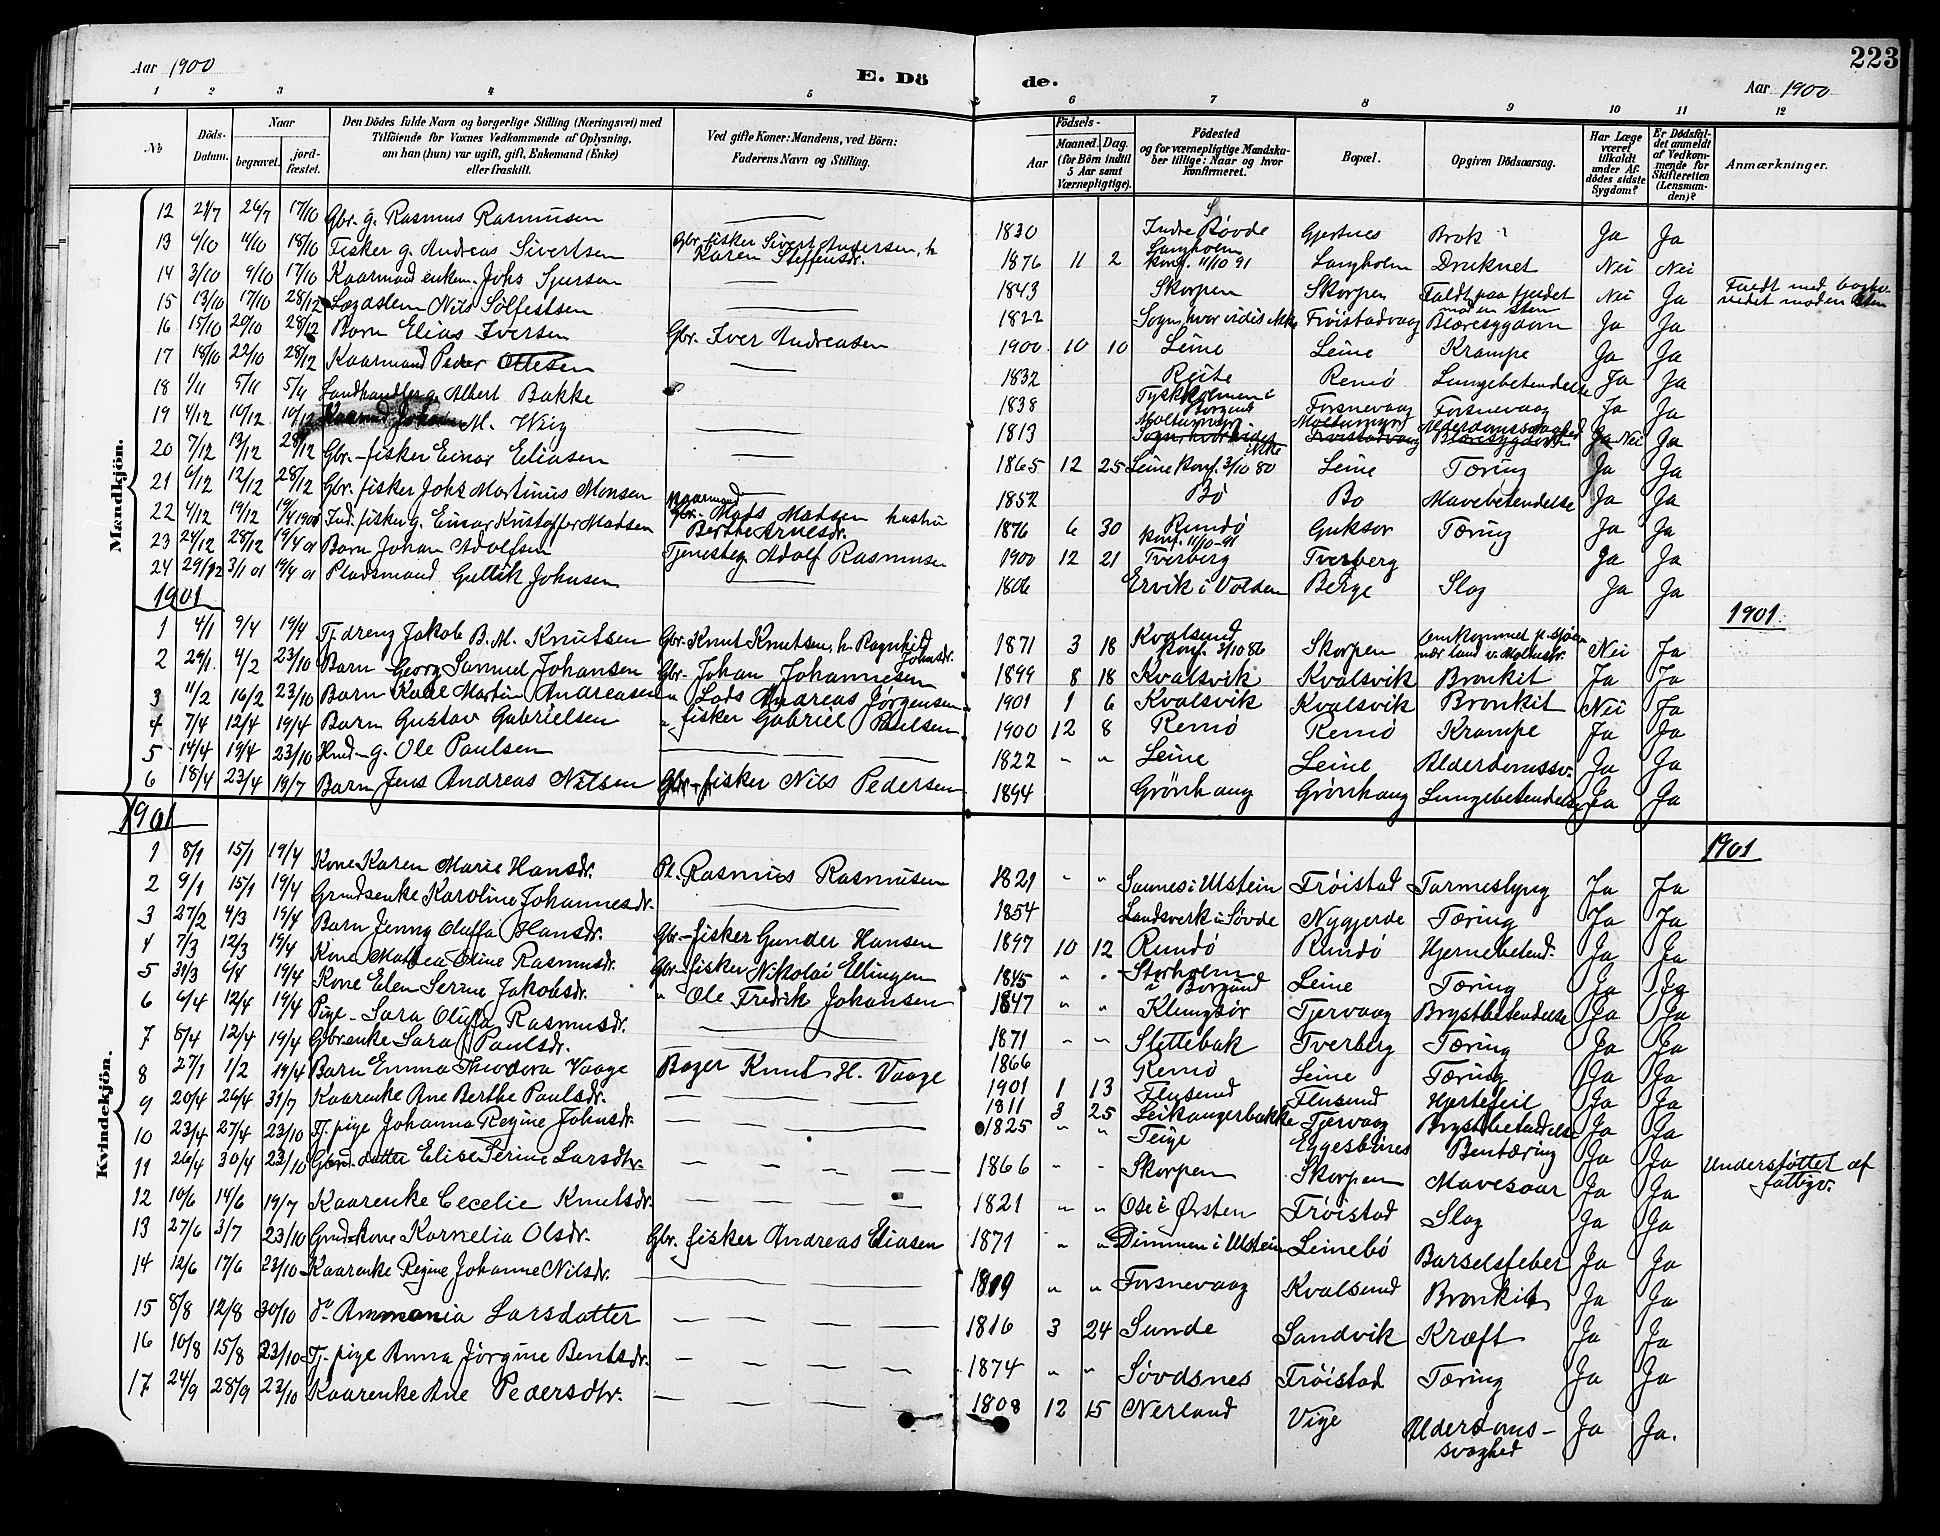 Aar 1900 E. Dö de. Aar 1900 223
1 2 3 4 5 6 7 8 9 10 11 12
No
Döds-Datum.
Naar begravet. jord-fæstet.
Den Dödes fulde Navn og borgerlige Stilling (Næringsvei) med Tilföiende for Voxnes Vedkommende af Oplysning, om han (hun) var ugift, gift, Enkemand (Enke) eller fraskilt.
Ved gifte Koner: Mandens, ved Börn: Faderens Navn og Stilling.
Födsels- Aar Maaned. Dag. (for Börn indtil 5 Aar samt Værnepligtige).
Födested og for værnepligtige Mandskaber tillige: Naar og hvor konfirmeret.
Bopæl.
Opgiven Dödsaarsag.
Har Læge været tilkaldt under Afdödes sidste Sygdom?
Er Dödsfaldet anmeldt af Vedkommende for Skifteretten (Lensmanden)?
Anmærkninger.
Mandkjön.
12 21/7 26/7 17/10 Gbr. g. Rasmus Rasmusen 1830 Indre Søvde Gjertnes Brok Ja Ja
13 6/10 11/10 18/10 Fisker g. Andreas Sivertsen Gbr. fisker Sivert Andersen, h Karen Steffensdr. 1876 11 2 Langholm konf. 11/10 91 Langholm Druknet Nei Nei
14 3/10 9/10 17/10 Kaarmand enkem. Johs Sjurson 1843 Skorpen Skorpen Faldt paa fjeldet mod en sten Nei Ja Faldt med bagho- vedet mod en sten
15 13/10 17/10 28/12 Lægdslem Nils Sölfestsen 1822 Sogn, hvor vides ikke Frøistadvaag Blæresygdom Ja Ja
16 15/10 20/10 28/12 Barn Elias Iversen Gbr. Iver Andreasen 1900 10 10 Leine Leine Krampe Ja Ja
17 18/10 22/10 28/12 Kaarmand Peder Ottesen 1832 Reite Remö Lungebetendelse Ja Ja
18 1/11 5/11 5/11 Landhandler g. Albert Bakke 1838 Tyskholmen i Borgund Fosnevaag Fosnevaag Ja Ja
19 4/12 10/12 10/12 Kaarmd Johan M. Weig 1813 Moltumyr Sogn, hvor vides ikke Moltumyr Frøistadvaag Alderdomssvaghed Blæresygdom Ja Nei Ja
20 7/12 13/12 28/12 Gbr.-fisker Einar Eliasen 1865 12 25 Leine konf. 3/10 80 Leine Tæring Ja Ja
21 6/12 12/12 28/12 Gbr. fisker Johs Martinus Monsen 1852 Bø Bø Mavebetendelse Ja Ja
22 4/12 19/12 19/4 1901 Ind. fisker g. Einar Kristoffer Madsen Kaarmand Gbr. Mads Madsen hustru Berthe Arnesdr. 1876 6 30 Rundö konf. 11/10-91 Goksør Tæring Ja Ja
23 24/12 28/12 19/4 01 Barn Johan Adolfsen Tjenesteg. Adolf Rasmusen 1900 12 21 Tverberg Tverberg Ja Ja
24 29/12 3/1 01 19/4 01 Pladsmand Gullik Johnsen 1806 Ervik i Volden Berge Slag Ja Ja
1901 1901
1 4/1 9/4 19/4 Tj. dreng Jakob B. M. Knutsen Gbr. Knut Knutsen, h. Ragnhild Johnsdr. 1871 3 18 Kvalsund konf. 3/10 86 Skorpen Omkommet p. sjøen nær land v. Nei Ja
2 29/1 4/2 23/10 Barn Georg Samuel Johansen Gbr. Johan Johannesen 1899 8 18 Kvalsvik Kvalsvik Bronkit Ja Ja
3 11/2 16/2 23/10 Barn Kaare Martin Andreasen " Lods Andreas Jørgensen 1901 1 6 Kvalsvik Kvalsvik Bronkit Nei Ja
4 7/4 12/4 19/4 Barn Gustav Gabrielsen " fisker Gabriel Paulsen 1900 12 8 Remö Remö Krampe Ja Ja
5 14/4 19/4 23/10 Hmd-g. Ole Paulsen 1822 " " Leine Leine Alderdomssv. Ja Ja
6 18/4 23/4 19/7 Barn Jens Andreas Nilsen Gbr.-fisker Nils Pedersen 1894 Grönhaug Grönhaug Lungebetendelse Ja Ja
1901 1901
Kvindekjön.
1 8/1 15/1 19/4 Kone Karen Marie Hansdr. Pl. Rasmus Rasmusen 1821 " " Saunes i Ulstein Frøistad Tarmeslyng Ja Ja
2 9/1 15/1 19/4 Grundsenke Karoline Johannesdr. 1854 Landsverk i Søvde Nygjerde Tæring Ja Ja
3 27/2 4/3 19/4 Barn Jenny Oluffa Hansdr. Gbr.-fisker Gunder Hansen 1897 10 12 Rundö Rundö Hjernebetend. Ja Ja
4 7/3 12/3 19/4 Kone Mathea Oline Rasmusdr. Gbr.-fisker Nikolai Ellingen 1845 " " Storholm i Borgund Leine Tæring Ja Ja
5 31/3 6/4 19/4 Kone Elen Serine Jakobsdr. " Ole Fredrik Johansen 1847 " " Klungsör Tjørvaag Brystbetendelse Ja Ja
6 6/4 12/4 19/4 Pige- Sara Oluffa Rasmusdr. 1871 " " Slettebak Tverberg Tæring Ja Ja
7 8/4 12/4 19/4 Gbr.enke Sara Paulsdr. 1866 Remö Leine Tæring Ja Ja
8 27/1 1/2 19/4 Barn Emma Theodora Vaage Bager Knut H. Vaage 1901 1 13 Flusund Flusund Hjertefeil Ja Ja
9 20/4 26/4 31/7 Kaarenke Ane Berthe Paulsdr. 1811 3 25 Leikangerbakke Tjørvaag Brystbetendelse Ja Ja
10 23/4 27/4 23/10 Tj. pige Johanna Regine Johnsdr. 1825 " " Teige Eggesbönes Bentæring Ja Ja
11 26/4 30/4 23/10 Gbrd. datter Elise Serine Larsdtr. 1866 " " Skorpen Skorpen Mavesaar Ja Ja Understøttet af fattigv.
12 10/6 14/6 19/7 Kaarenke Cecelie Knutsdr. 1821 " " Ose i Ørsten Frøistad Slag Ja Ja
13 27/6 3/7 23/10 Grmd-kone Kornelia Olsdr. Gbr. fisker Andreas Eliasen 1871 " " Dimmen i Ulstein Leinebö Barselsfeber Ja Ja
14 12/6 17/6 23/10 Kaarenke Regine Johanne Nilsdr. 1819 " " Fosnevaag Kvalsund Bronkit Ja Ja
15 8/8 12/8 30/10 do Ammonia Larsdatter 1816 3 24 Sunde Sandvik Kræft Ja Ja
16 10/8 15/8 23/10 Tj. pige Anna Jørgine Bentsdr. 1874 " " Søvdsnes Frøistad Tæring Ja Ja
17 24/9 28/9 23/10 Kaarenke Ane Pedersdtr. 1808 12 15 Nerland Vige Alderdoms- svaghed Ja Ja.